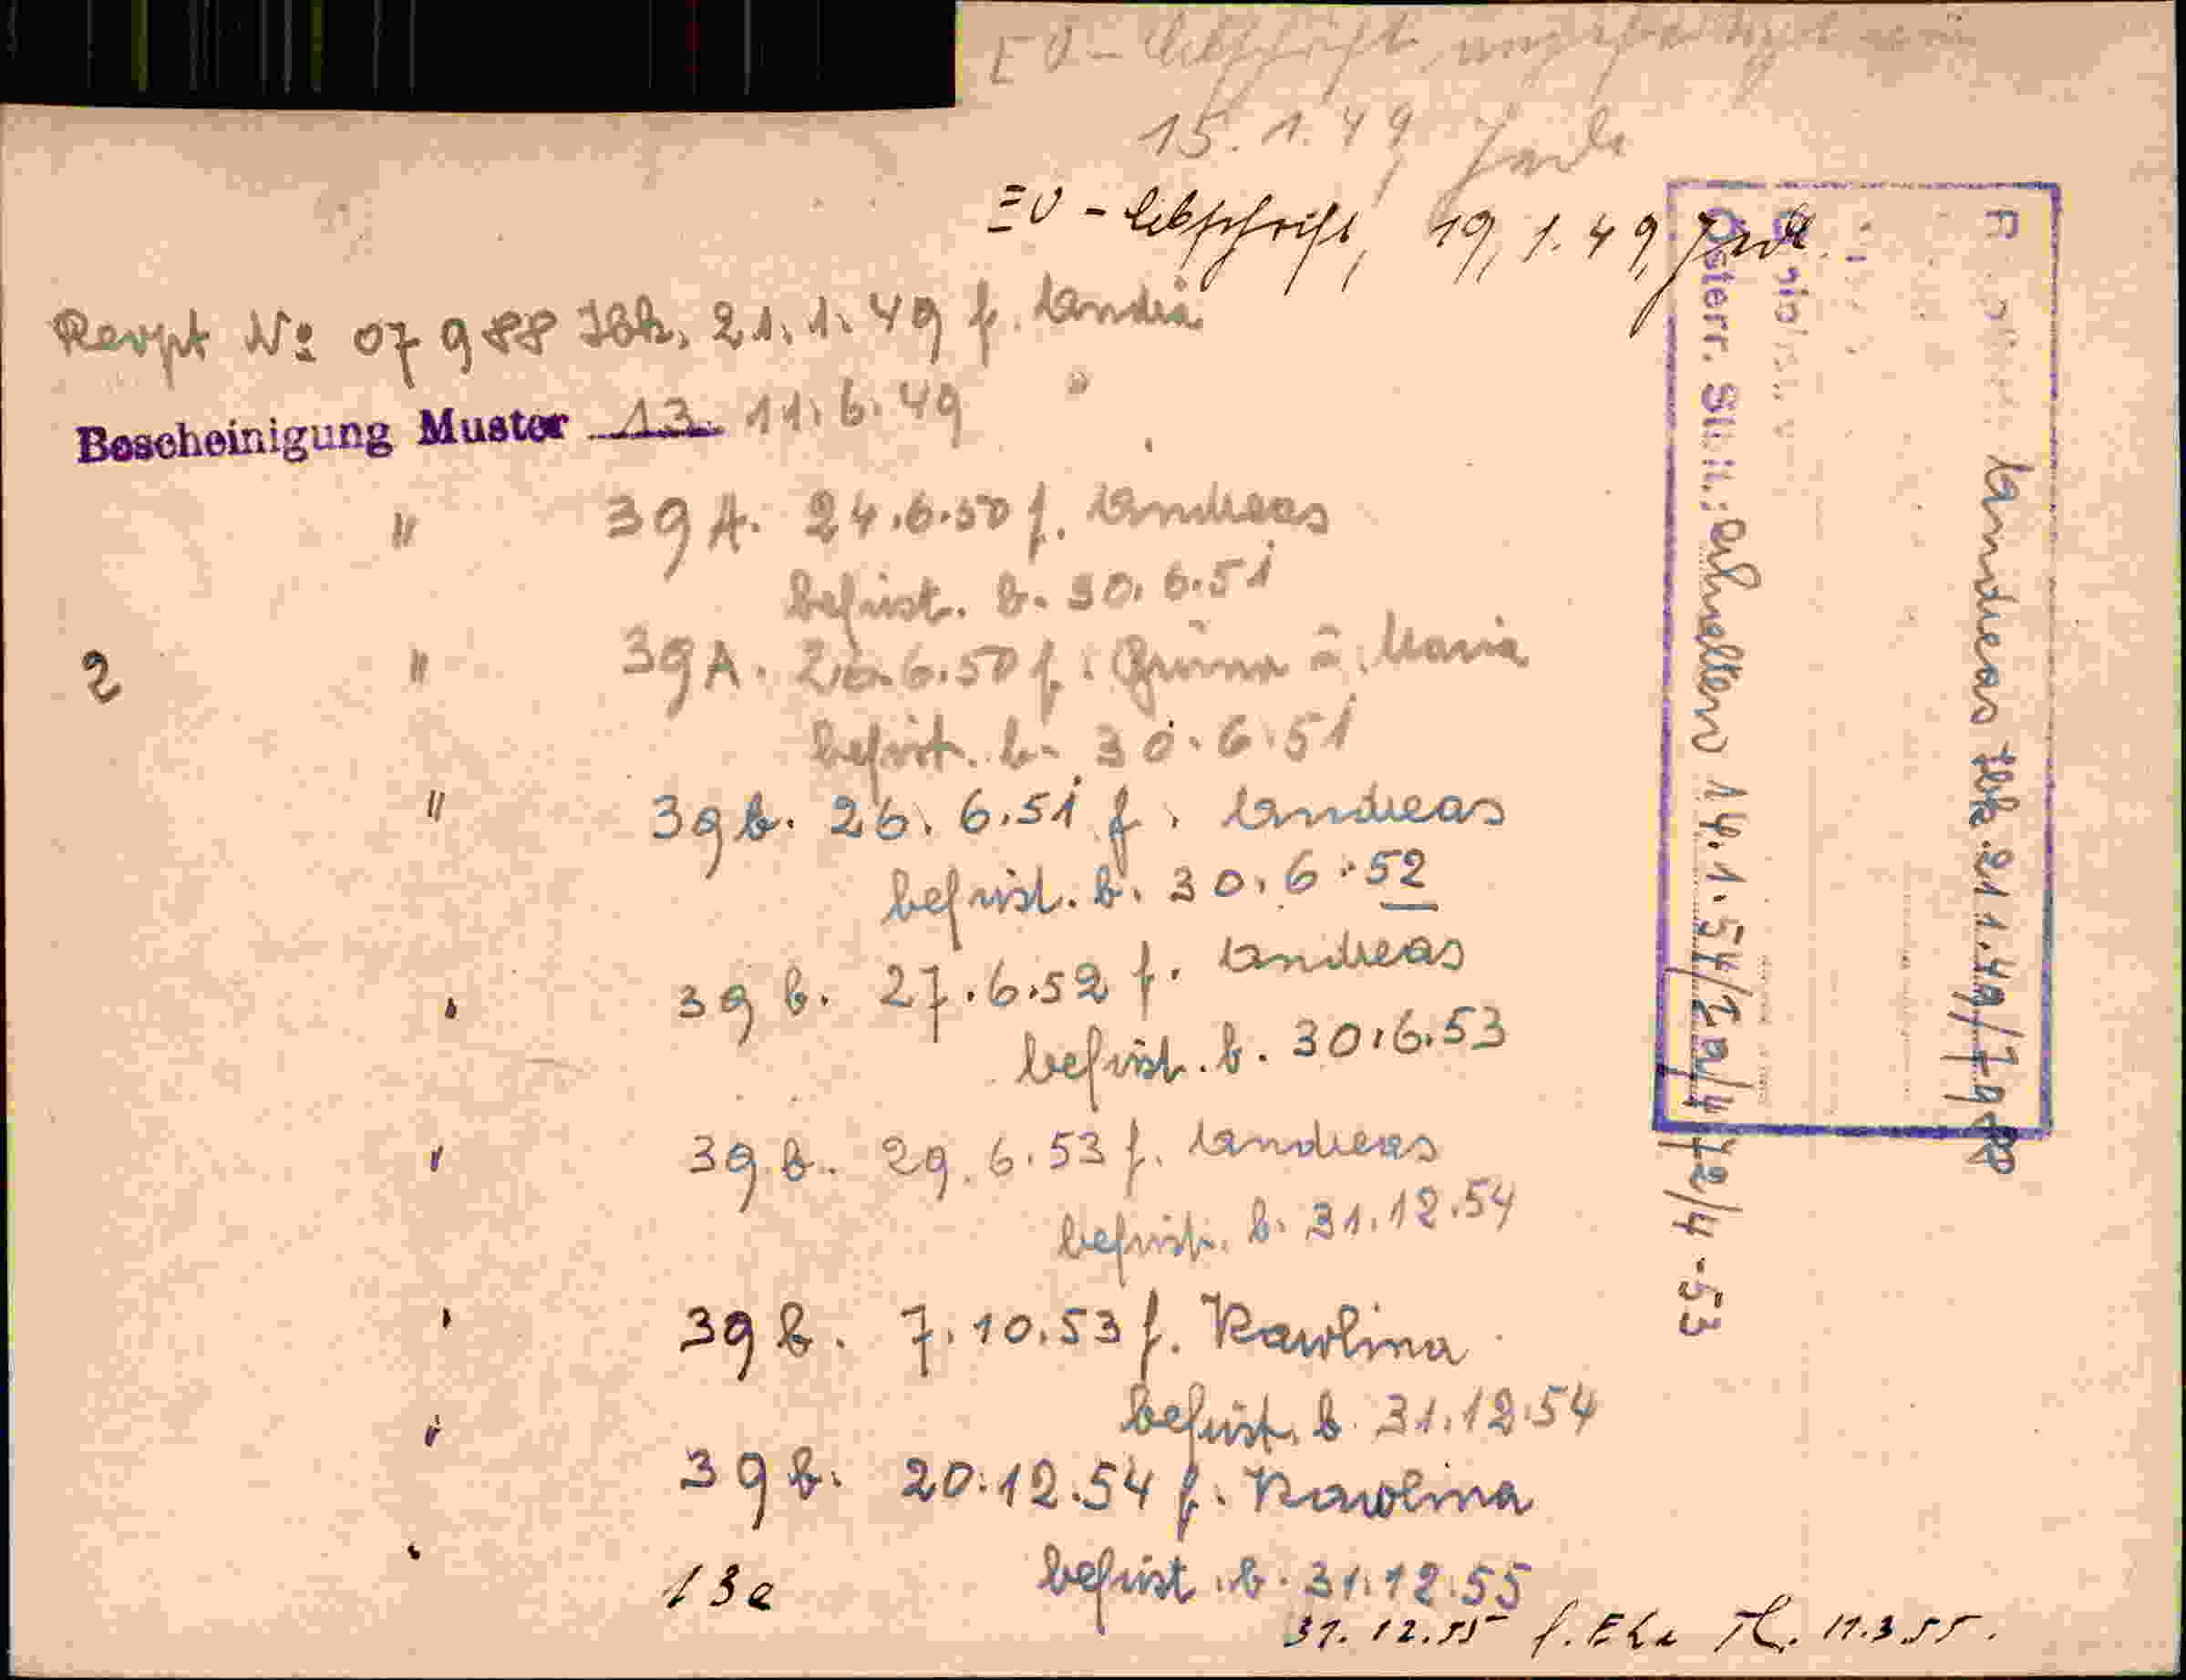 EV-Abschrift,
15.1.49
EV-Abschrift, 19.1.49,
Rezept No 07988 IBK, 21.1.49 f. Andrä
Bescheinigung Muster 13 11.6.49 "
" 39 A. 24.6.50 f. Andreas
befrist. b. 30.6.51
2 " 39 A. 26.6.50 f. Maria
befrist. b. 30.6.51
" 39 b. 26.6.51 f. Andreas
befrist. b. 30.6.52
" 39 b. 27.6.52 f. Andreas
befrist. b. 30.6.53
" 39 b. 29.6.53 f. Andreas
befrist. b. 31.12.54
" 39 b. 7.10.53 f. Karolina
befrist. b. 31.12.54
" 39 b. 20.12.54 f. Karolina
befrist. b. 31.12.55
" 13a
31.12.55 f. Ehe 11.3.55.
Andreas IBK 21.1.49/7988
Österr. erhalten 14.1.54/